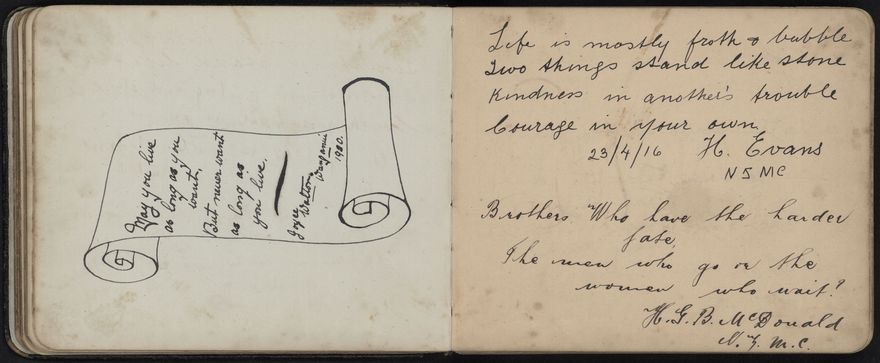 May you live
as long as you
want,
But never want
as long as
you live.
Joyce
Walton,
Wanganui
1920.
Life is mostly froth & bubble
Two things stand like stone
Kindness in another's trouble
Courage in your own
23/4/16 H. Evans
NZMC
Brothers Who have the harder
fate,
The men who go or the
women who wait?
H.G.B. McDonald
N.Z.M.C.